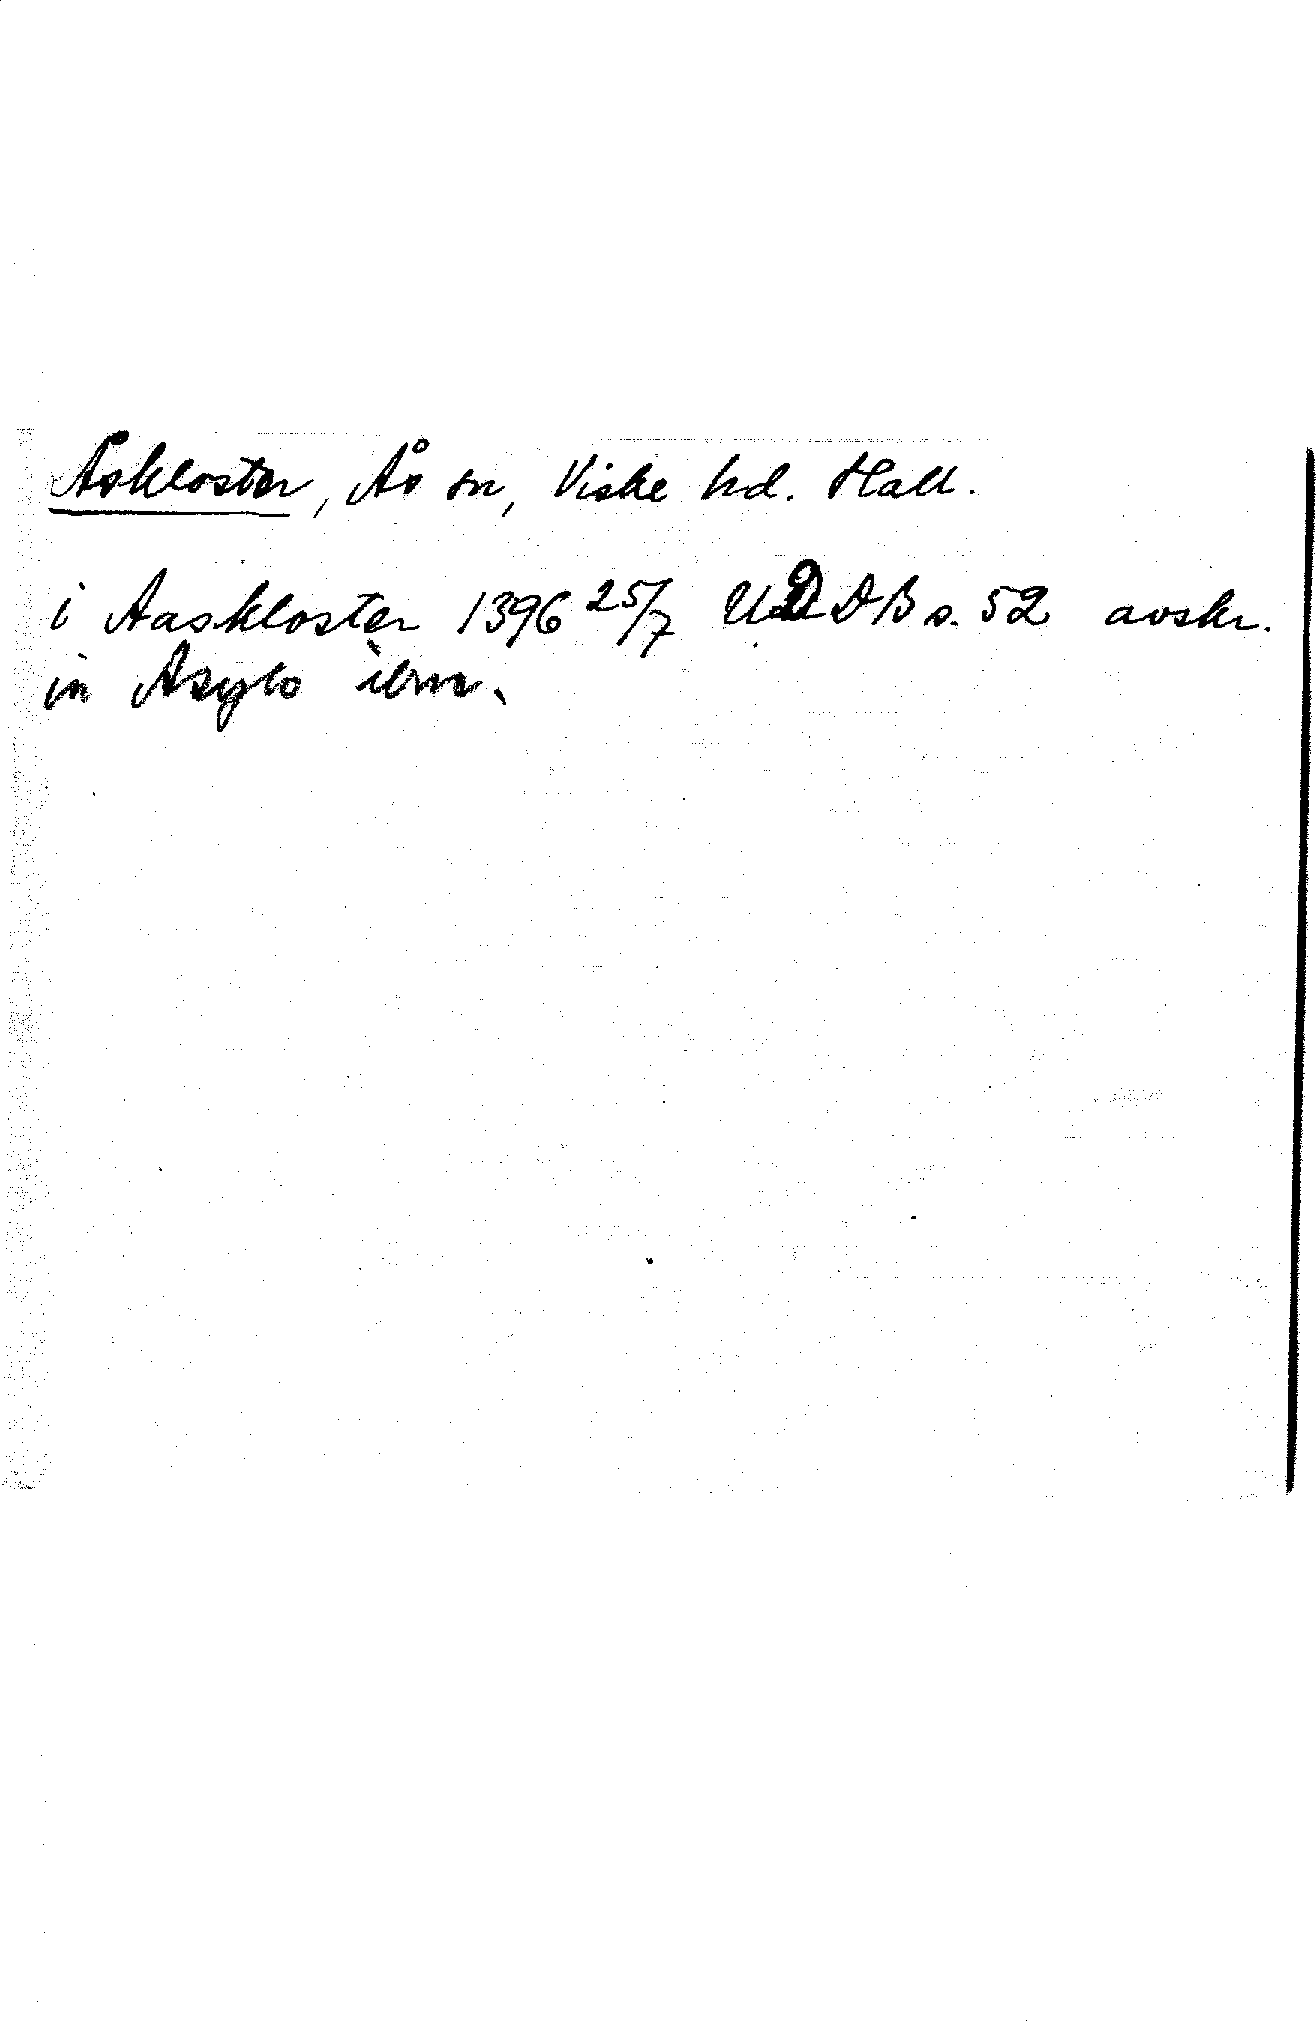 Åskloster, Ås sn, Viske hd. Hall.
i Aaskloster 1396 25/7 UDDB s. 52 avskr.
in Asylo ibm.